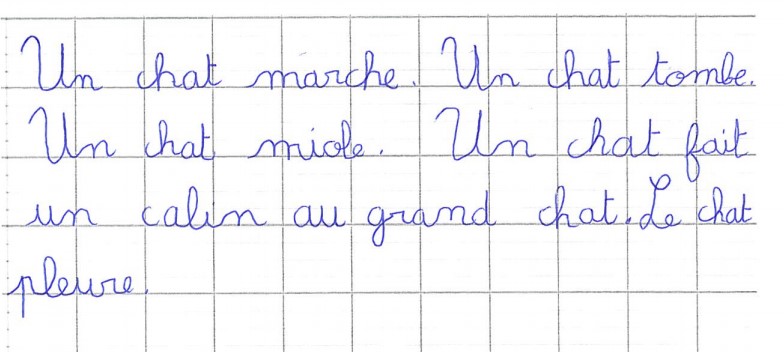 Un chat marche. Un chat tombe.
Un chat miole. Un chat fait
un calin au grand chat. Le chat
pleure.